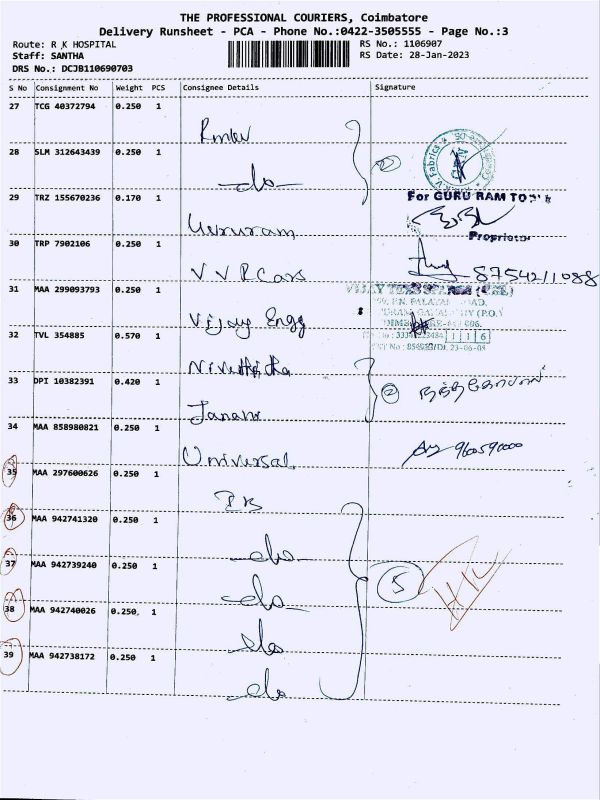 THE PROFESSIONAL COURIERS, Coimbatore
Delivery Runsheet - PCA - Phone No.:0422-3505555 - Page No.:3
Route: R K HOSPITAL
RS No.: 1106907
Staff: SANTHA
RS Date: 28-Jan-2023
DRS No.: DCJB110690703
S No Consignment No Weight PCS Consignee Details Signature
27 TCG 40372794 0.250 1
28 SLM 312643439 0.250 1
do
29 TRZ 155670236 0.170 1
For GURU RAM
Proprietor
30 TRP 7902106 0.250 1
V V R Cars
8754211088
31 MAA 299093793 0.250 1
Vijay Engg
32 TVL 354885 0.570 1
33 DPI 10382391 0.420 1
2
Janani
34 MAA 858980821 0.250 1
Universal
35 MAA 297600626 0.250 1
36 MAA 942741320 0.250 1
do
37 MAA 942739240 0.250 1
5
do
38 MAA 942740026 0.250 1
do
39 MAA 942738172 0.250 1
do